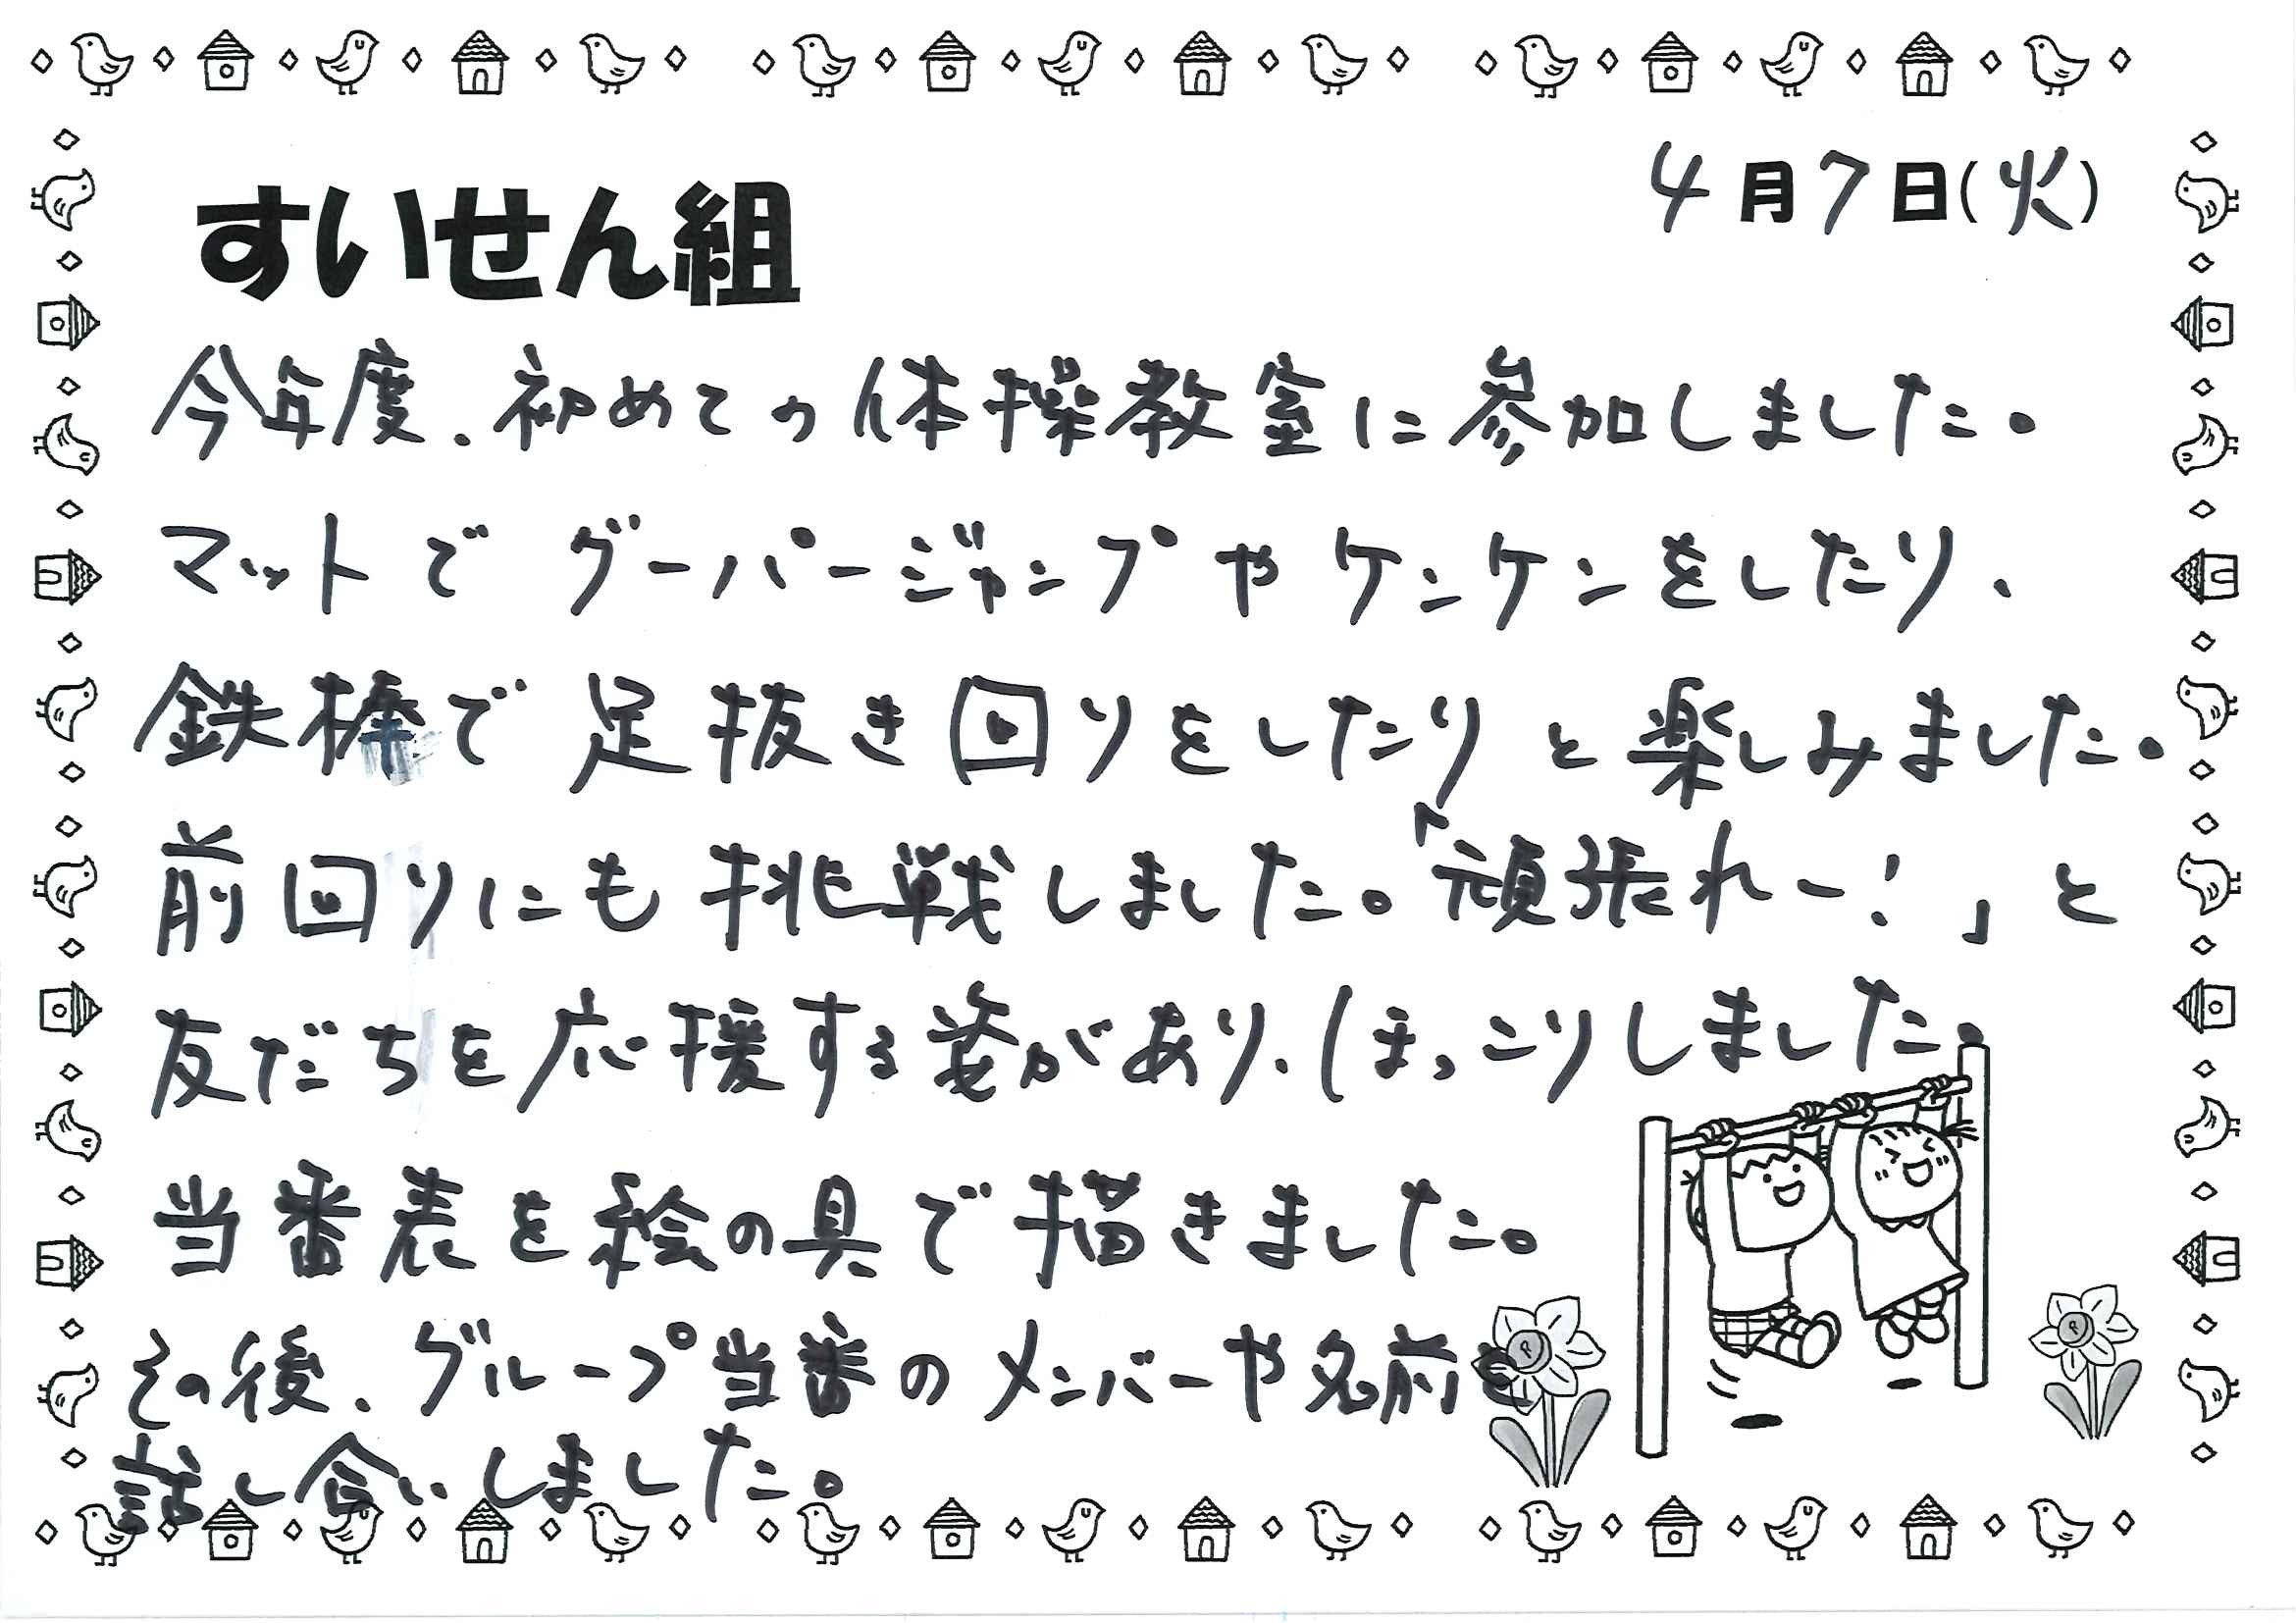 4月7日(火)
すいせん組
今年度、初めての体操教室に参加しました。
マットでグーパージャンプやケンケンをしたり、
鉄棒で足抜き回りをしたりと楽しみました。
前回りにも挑戦しました。「頑張れー!」と
友だちを応援する姿があり、ほっこりしました。
当番表を絵の具で描きました。
その後、グループ当番のメンバーや名前を
話し合いしました。